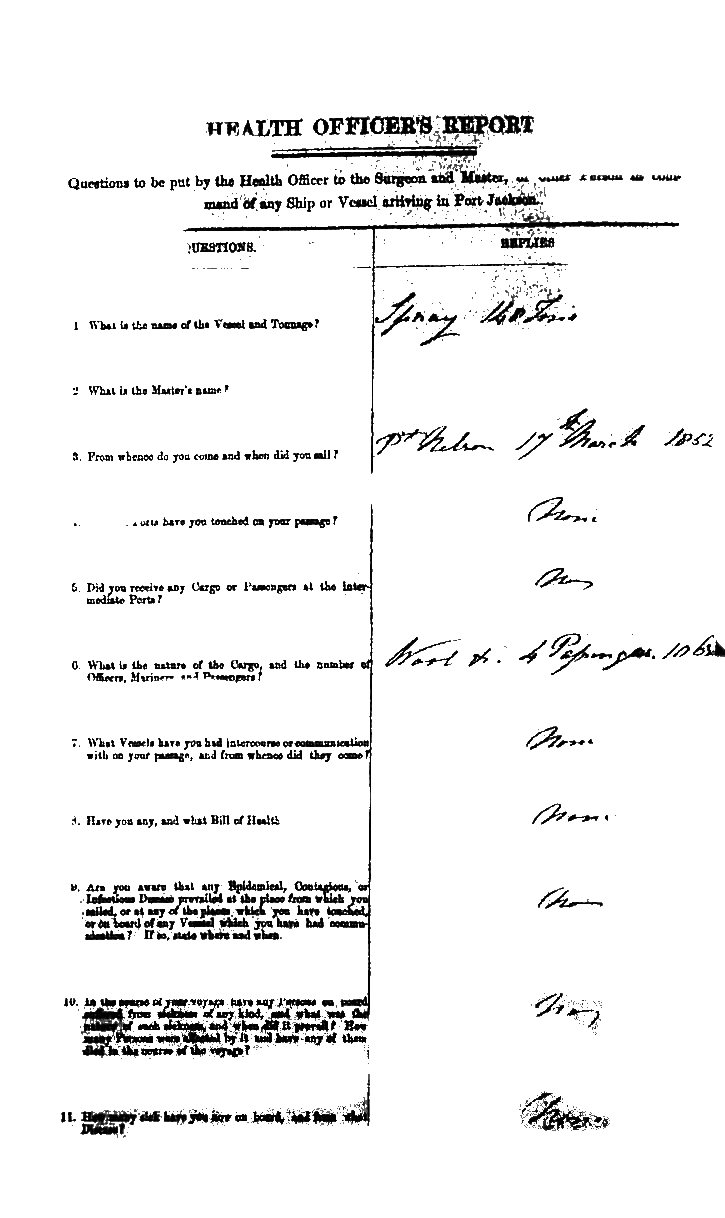 HEALTH OFFICER'S REPORT
Questions to be put by the Health Officer to the Surgeon and Master, or other Person in com-
mand of any Ship or Vessel arriving in Port Jackson.
QUESTIONS. REPLIES
1 What is the name of the Vessel and Tonnage? Spray Tons
2 What is the Master's name?
3. From whence do you come and when did you sail? Pt Nelson 17th March 1852
have you touched on your passage? None
5. Did you receive any Cargo or Passengers at the inter-
mediate Ports? No
6. What is the nature of the Cargo, and the number of Wool &. 4 Passengers.
Officers, Mariners and Passengers?
7. What Vessels have you had intercourse or communication None
with on your passage, and from whence did they come?
8. Have you any, and what Bill of Health None
9. Are you aware that any Epidemical, Contagious, or
Infectious Disease prevailed at the place from which you No
sailed, or at any of the places which you have touched,
or on board of any Vessel which you have had commu-
nication? If so, state where and when.
10. In the course of your voyage have any Persons on board No
suffered from sickness of any kind, and what was the
nature of such sickness, and when did it prevail? How
many Persons were affected by it and have any of them
died in the course of the voyage?
11. How many sick have you now on board, and from what None
Disease?